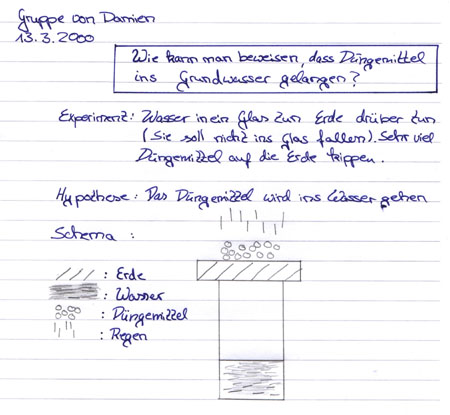 Gruppe von Damien
13.3.2000
Wie kann man beweisen, dass Düngemittel
ins Grundwasser gelangen?
Experiment: Wasser in ein Glas tun Erde drüber tun
(Sie soll nicht ins Glas fallen). Sehr viel
Düngemittel auf die Erde kippen.
Hypothese: Das Düngemittel wird ins Wasser gehen
Schema:
: Erde
: Wasser
: Düngemittel
: Regen